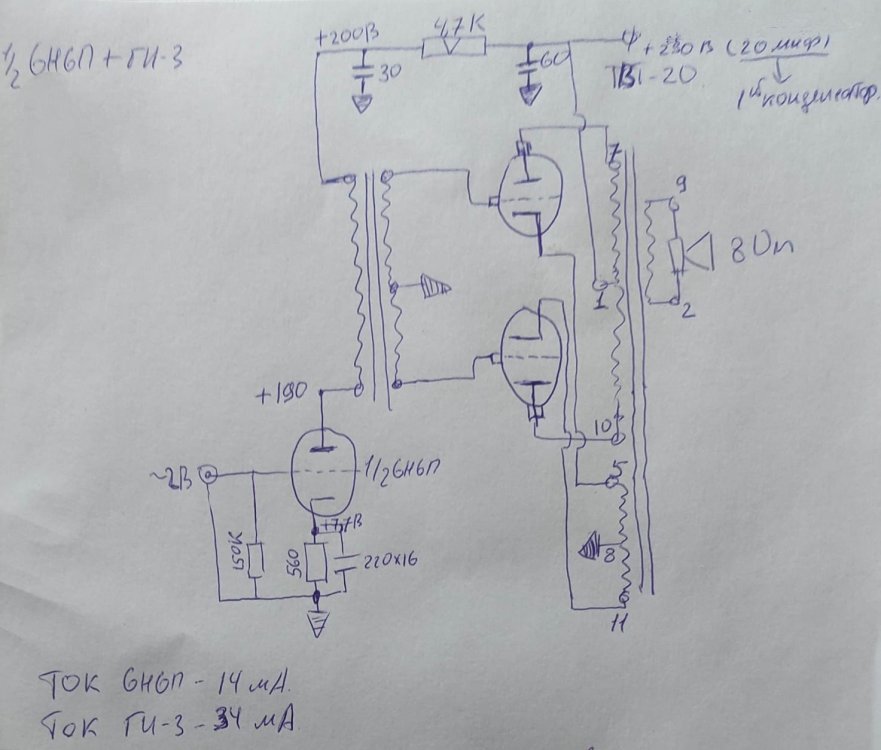 +200В
4,7К
1/2 6Н6П + ГИ-3
30
60
+230 В (20 мкф)
ТВ1-20
1й конденсатор.
7
9
8 Ом
1
2
+190
10
~2В
1/2 6Н6П
5
+7,7В
150К
560
220х16
8
11
Ток 6Н6П - 14 мА.
Ток ГИ-3 - 34 мА